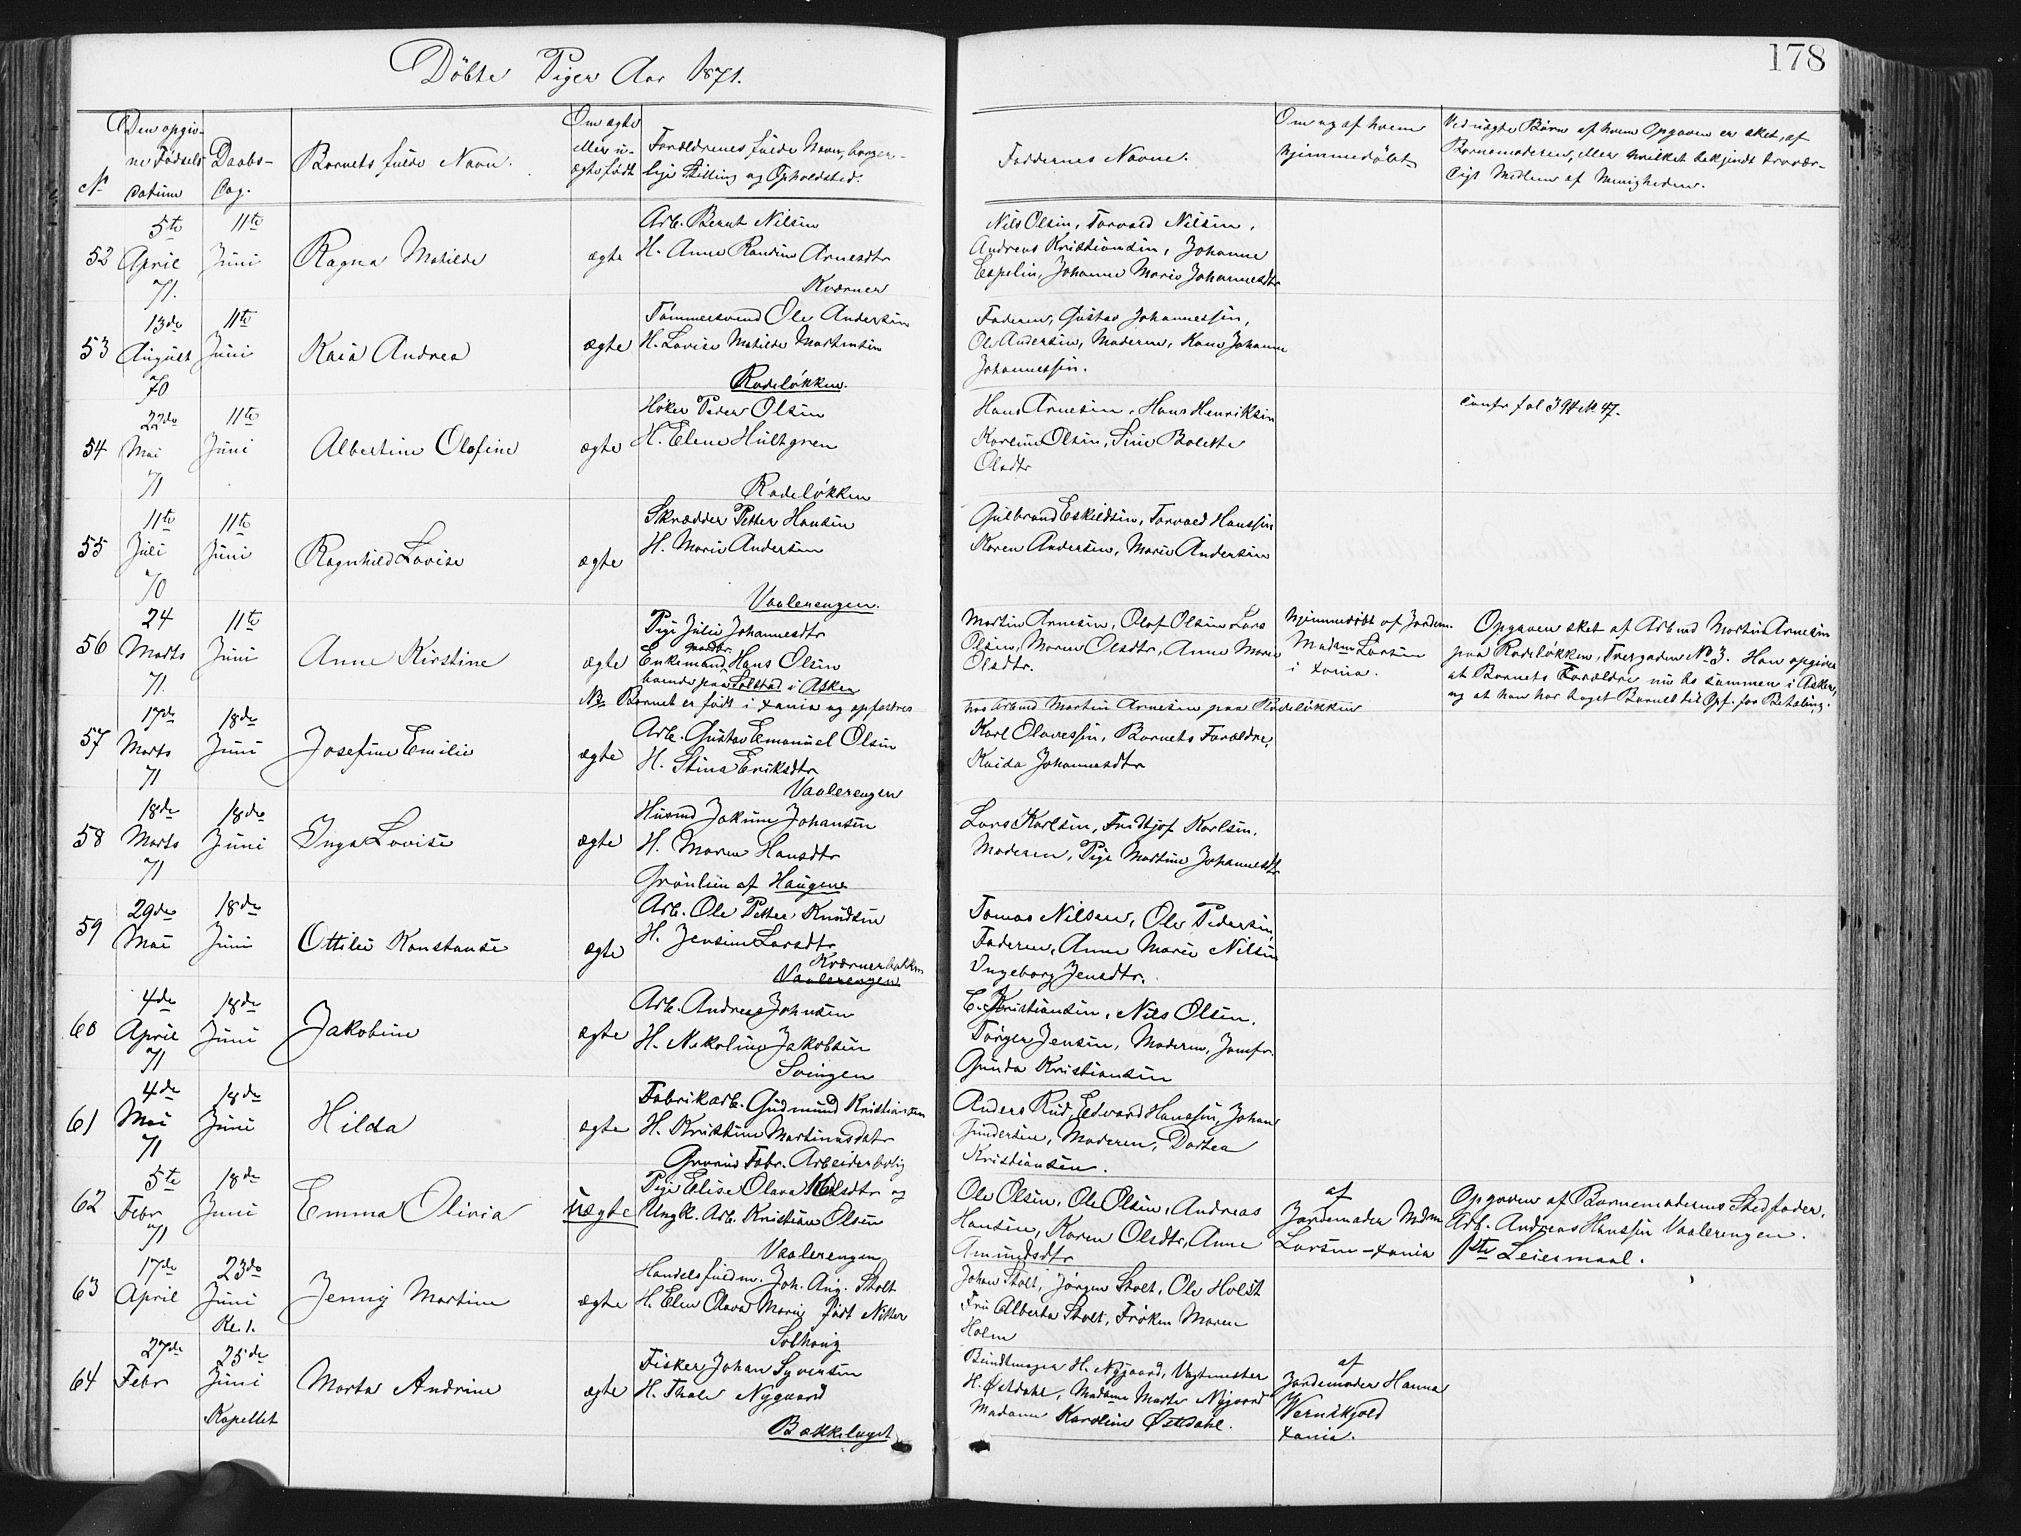 Døbte Piger Aar 1871.
178
No
Den opgiv-
ne Fødsels
Datum
Daabs-
Dag.
Barnets fulde Navn.
Om ægte
eller u-
ægte født
Forældrenes fulde Navn, borger-
lige Stilling og Opholdsted.
Faddernes Navne.
Om og af hvem
hjemmedøbt
Ved uægte Børn af hvem Opgaven er sket, af
Barnemoderen, eller hvilket bekjendt troværdigt
Medlem af Menigheden.
52
5te
April
71.
11te
Juni
Ragna Matilde
ægte
Arb. Bernt Nilsen
H. Anne Randine Arnesdtr
Kværner
Nils Olsen, Torvald Nilsen,
Andreas Kristiansen, Johanne
Espelin, Johanne Marie Johannesdtr
53
13de
August
70
11te
Juni
Kaia Andrea
ægte
Tømmersvend Ole Andersen
H. Lovise Matilde Martinsen
Rodeløkken.
Faderen, Gustav Johannessen,
Ole Andersen, Moderen, Kone Johanne
Johannessen.
54
22de
Mai
71
11te
Juni
Albertine Olafine
ægte
Høker Peder Olsen
H. Elene Hultgren
Rodeløkken
Hans Arnesen, Hans Henriksen
Karline Olsen, Sine Bolette
Olsdtr
Confr fol 394 No 47.
55
11te
Juli
70
11te
Juni
Ragnhild Lovise
ægte
Skrædder Petter Hansen
H. Marie Andersen
Vaalerengen.
Gulbrand Eskildsen, Torvald Hanssen
Karen Andersen, Marie Andersen
56
24
Marts
71.
11te
Juni
Anne Kirstine
ægte
Pige Julie Johannesdtr
Enkemand Hans Olsen
boende paa Solstad i Asker
NB Barnet er født i Xania og opfostres
hos Arbmd Martin Arnesen paa Rodeløkken
Martin Arnesen, Olof Olsen Lars
Olsen, Maren Olsdtr, Anne Marie
Olsdtr.
hjemmedøbt af Jordem.
Madam Larsen
i Xania.
Opgaven sket af Arbmd Martin Arnesen
paa Rodeløkken, Tvergaden No 3. Han opgiver
at Barnets Forældre nu bo sammen i Asker,
og at han har taget Barnet til Opf. for Betaling.
57
17de
Marts
71
18de
Juni
Josefine Emilie
ægte
Arb. Gustav Emanuel Olsen
H. Stina Eriksdtr
Vaalerengen
Karl Olavessen, Barnets Forældre,
Kaida Johannesdtr
58
18de
Marts
71
18de
Juni
Inga Lovise
ægte
Husmd Jokum Johansen
H. Maren Hansdtr
Grønlien af Haugene
Lars Karlsen, Fridtjof Karlsen,
Moderen, Pige Martine Johannesdtr
59
29de
Mai
18de
Juni
Ottilie Konstanse
ægte
Arb. Ole Petter Knudsen
H. Jensine Larsdtr
Kværnerbakken
Vaalerengen
Tomas Nilsen, Ole Pedersen,
Faderen, Anne Marie Nilsen
Ingeborg Jensdtr.
60
4de
April
71
18de
Juni
Jakobine
ægte
Arb. Andreas Johnsen
H. Nikoline Jakobsen
Svingen
E. Kristiansen, Nils Olsen,
Tørger Jensen, Moderen, Jomfr.
Gunda Kristiansen
61
4de
Mai
71
18de
Juni
Hilda
ægte
Fabrikarb. Gudmund Kristiansen
H. Kristine Martinusdatr
Grorud Fabr. Arbeiderbolig
Anders Rud, Edvard Hanssen, Johan
Gundersen, Moderen, Dortea
Kristiansen.
62
5te
Febr
71
18de
Juni
Emma Olivia
uægte
Pige Elise Olava Nilsdtr og
Ungk. Arb. Kristian Olsen
Vaalerengen
Ole Olsen, Ole Olsen, Andreas
Hansen, Karen Olsdtr, Anne
Amundsdtr
af
Jordemoder Mdm
Larsen – Xania
Opgaven af Barnemoderens Stedfader,
Arb. Andreas Hanssen Vaalerengen.
1ste Leiermaal.
63
17de
April
23de
Juni
Kl. 1.
Jenny Martine
ægte
Handelsfuldm. Joh. Aug. Stolt
H. Elen Olava Marie født Nitter
Solhaug
Johan Stolt, Jørgen Stolt, Ole Holst
Fru Alberta Stolt, Frøken Maren
Holm
64
27de
Febr
25de
Juni
Kapellet
Marta Andrine
ægte
Fisker Johan Syvertsen
H. Thale Nygaard
Bækkelaget
Bundtmager H. Nygaard, Vagtmester
H. Østdahl, Madame Marte Nygaard
Madame Karoline Østdahl.
af
Jordemoder Hanna
Wernskjold
Xania.